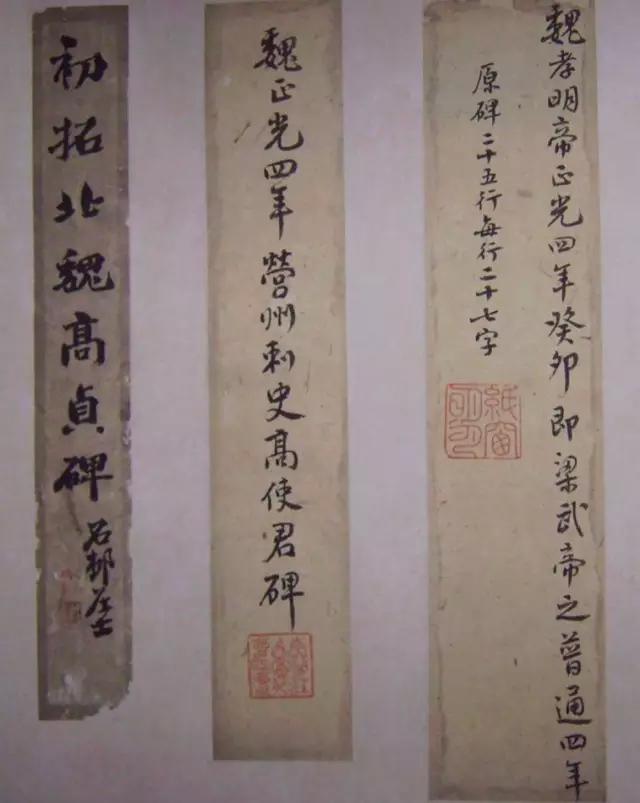 魏孝明帝正光四年癸卯即梁武帝之普通四年
原碑二十五行每行二十七字
紙窗
明月
魏正光四年營州刺史高使君碑
初拓北魏高貞碑
石邨